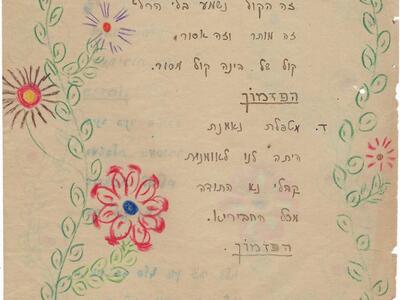 זה הקול נשמע בלי הרף
זה מותר וזה אסור,
קול של בינה קול מסור.
הפזמון
ד. מטפלת נאמנת
היתה לנו לאומנת
קבלי נא התודה
מכל החבריא.
הפזמון.